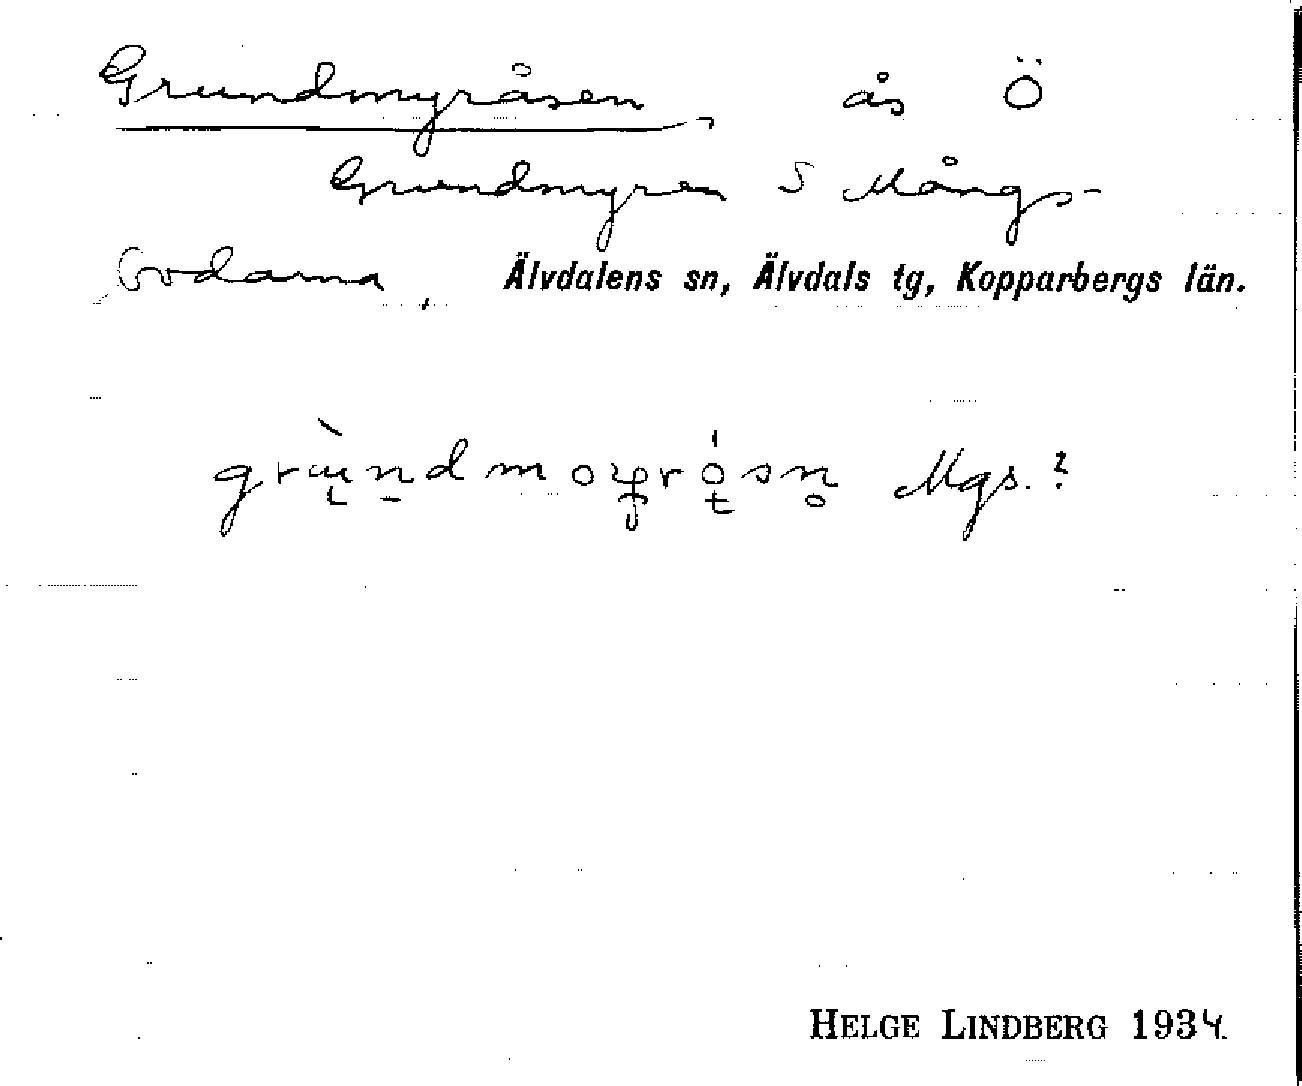 Grundmyråsen, ås Ö
Grundmyren S Mångs-
bodarna, Älvdalens sn, Älvdals tg, Kopparbergs län.
Mgs.?
HELGE LINDBERG 1934.